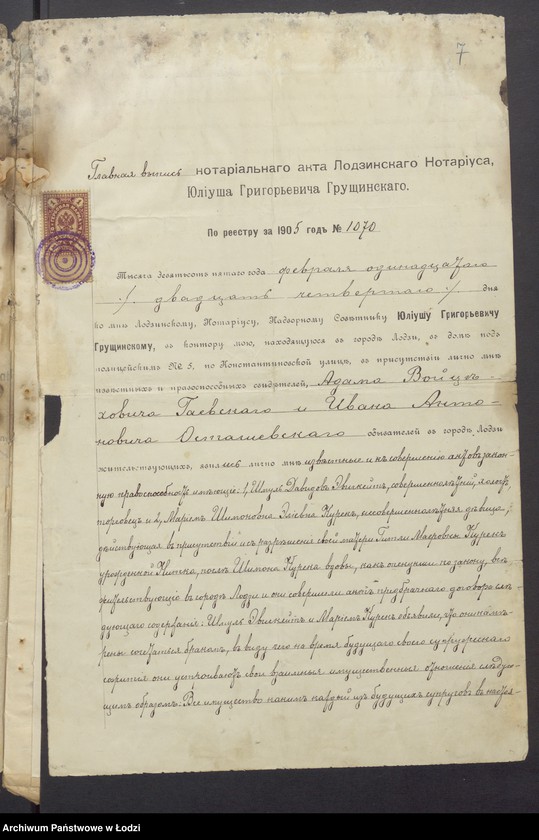 7
Главная выпись нотаріальнаго акта Лодзинскаго Нотаріуса,
Юліуша Григорьевича Грущинскаго.
По реестру за 1905 годъ № 1070
Тысяча девятьсотъ пятаго года февраля одинадцатого
/. двадцать четвертаго ./ дня
ко мнѣ Лодзинскому, Нотаріусу, Надворному Совѣтнику Юліушу Григорьевичу
Грущинскому, въ контору мою, находящуюся въ городѣ Лодзи, въ домѣ подъ
полицейскимъ № 5, по Константиновской улицѣ, въ присутствіи лично мнѣ
извѣстныхъ и правоспособныхъ свидѣтелей, Адама Войцѣ-
ховича Гаевскаго и Ивана Анто-
новича Осташевскаго обывателей въ городѣ Лодзи
жительствующихъ, явились лично мнѣ извѣстные и къ совершенію актовъ закон-
ную правоспособность имѣющіе: 1, Шмуль Давидовъ совершеннолѣтній, холостъ,
торговецъ и 2, Маріемъ Шимоновна Куренъ, несовершеннолѣтняя дѣвица,
дѣйствующая въ присутствіи и съ разрѣшенія своей матери Маеровны Куренъ
урожденной послѣ Шимона Курена вдовы, какъ опекунши по закону, всѣ
жительствующіе въ городѣ Лодзи и они совершили актъ предбрачнаго договора слѣ-
дующаго содержанія: Шмуль и Маріемъ Куренъ объявили, что они намѣ-
рены сочетаться бракомъ, въ виду чего на время будущаго своего супружескаго
сожитія они устроиваютъ свои взаимныя имущественныя отношенія слѣдую-
щимъ образомъ: Все имущество какимъ каждый изъ будущихъ супруговъ въ настоя-
Archiwum Państwowe w Łodzi